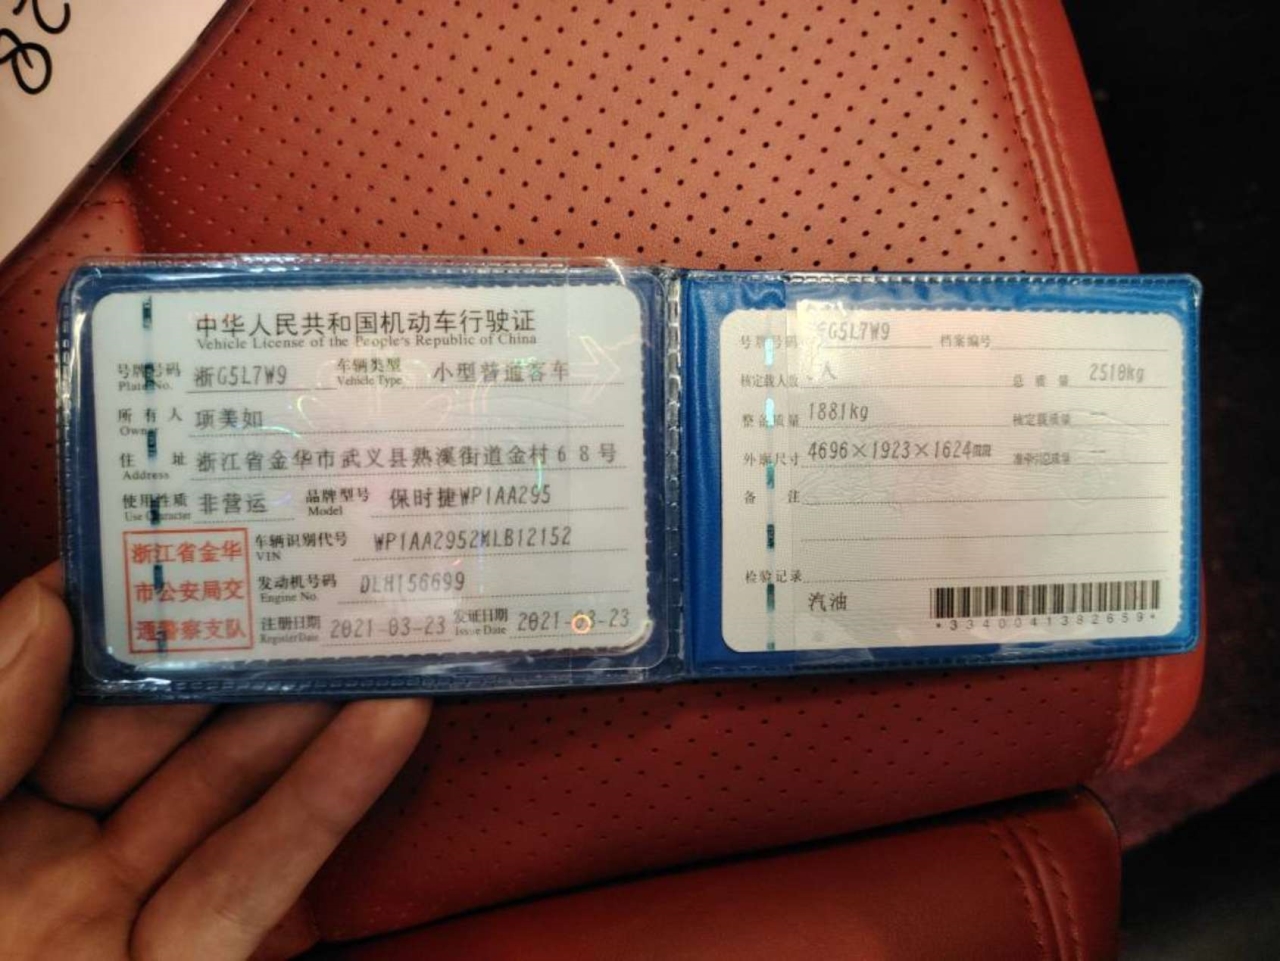 28
中华人民共和国机动车行驶证
Vehicle License of the People's Republic of China
号牌号码 浙G5L7W9 车辆类型 小型普通客车
Plate No. Vehicle Type
所有人 项美如
Owner
住址 浙江省金华市武义县熟溪街道金村68号
Address
使用性质 非营运 品牌型号 保时捷WP1AA295
Use Character Model
浙江省金华
市公安局交
通警察支队
车辆识别代号 WP1AA2952MLB12152
VIN
发动机号码 DLH156699
Engine No.
注册日期 2021-03-23 发证日期 2021-03-23
Register Date Issue Date
号牌号码 浙G5L7W9 档案编号
核定载人数 人 总质量 2510kg
整备质量 1881kg 核定载质量
外廓尺寸 4696×1923×1624mm 准牵引总质量
备注
检验记录
汽油
*3340041382659*